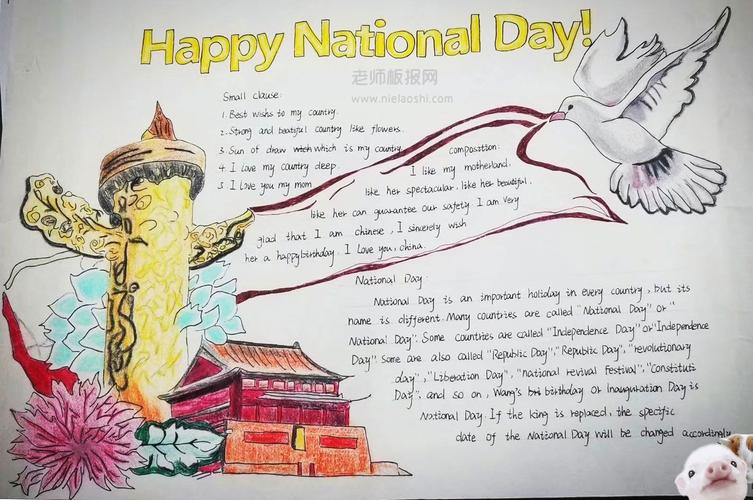 Happy National Day!
老师板报网
www.nielaoshi.com
Small clause:
1. Best wishes to my country.
2. Strong and beatiful country like flowers.
3. Sun of draw which is my country
4. I love my country deep.
5. I love you my mom
composition:
I like my motherland.
like her spectacular, like her beautiful,
like her can guarantee our safety. I am very
glad that I am chinese, I sincerely wish
her a happybirthday. I love you, china.
National Day:
National Day is an important holiday in every country, but its
name is different. Many countries are called "National Day" or "
National Day". Some countries are called "Independence Day" or "Independence
Day". Some are also called "Republic Day", "Republic Day", "revolutionary
day", "Liberation Day", "national revival festival", "Constituti
Day", and so on, Wang's birthday or Inauguration Day is
National Day. If the king is replaced, the specific
date of the National Day will be changed accordingly